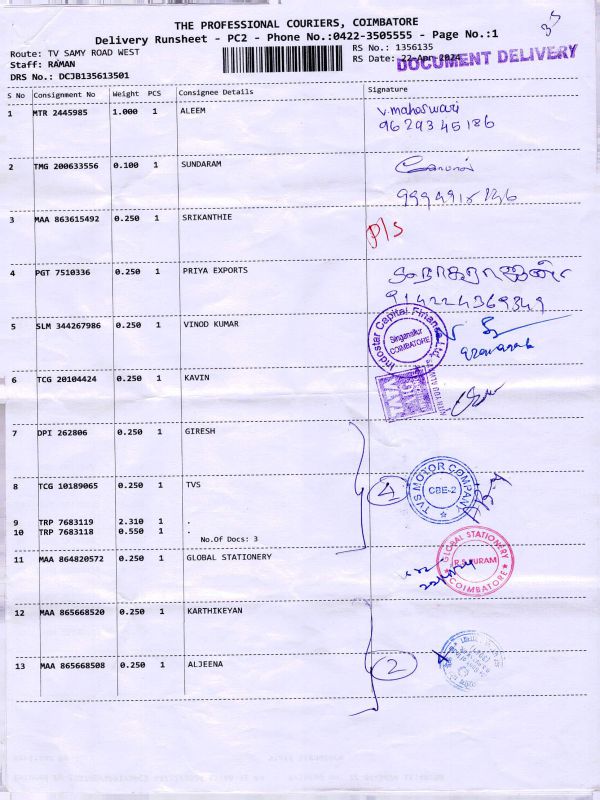 THE PROFESSIONAL COURIERS, COIMBATORE
Delivery Runsheet - PC2 - Phone No.:0422-3505555 - Page No.:1
Route: TV SAMY ROAD WEST
RS No.: 1356135
Staff: RAMAN
RS Date: 22-Apr-2024
DOCUMENT DELIVERY
DRS No.: DCJB135613501
S No Consignment No Weight PCS Consignee Details Signature
1 MTR 2445985 1.000 1 ALEEM V. maheswari
9629345186
2 TMG 200633556 0.100 1 SUNDARAM
3 MAA 863615492 0.250 1 SRIKANTHIE P/s
4 PGT 7510336 0.250 1 PRIYA EXPORTS
5 SLM 344267986 0.250 1 VINOD KUMAR
Indostar Capital Finance Ltd.
Singanallur
COIMBATORE
6 TCG 20104424 0.250 1 KAVIN
7 DPI 262806 0.250 1 GIRESH
8 TCG 10189065 0.250 1 TVS
4
TVS MOTOR COMPANY
CBE-2
9 TRP 7683119 2.310 1 .
10 TRP 7683118 0.550 1 .
No.Of Docs: 3
11 MAA 864820572 0.250 1 GLOBAL STATIONERY
GLOBAL STATIONERY
R.S.PURAM
COIMBATORE
12 MAA 865668520 0.250 1 KARTHIKEYAN
13 MAA 865668508 0.250 1 ALJEENA
2